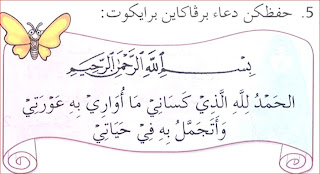 5. حفظكن دعاء برڤاكاين برايكوت:
بِسْمِ ٱللَّهِ ٱلرَّحْمَٰنِ ٱلرَّحِيمِ
الحَمْدُ لِلَّهِ الَّذِيْ كَسَانِيْ مَا أُوَارِيْ بِهِ عَوْرَتِيْ
وَأَتَجَمَّلُ بِهِ فِيْ حَيَاتِيْ